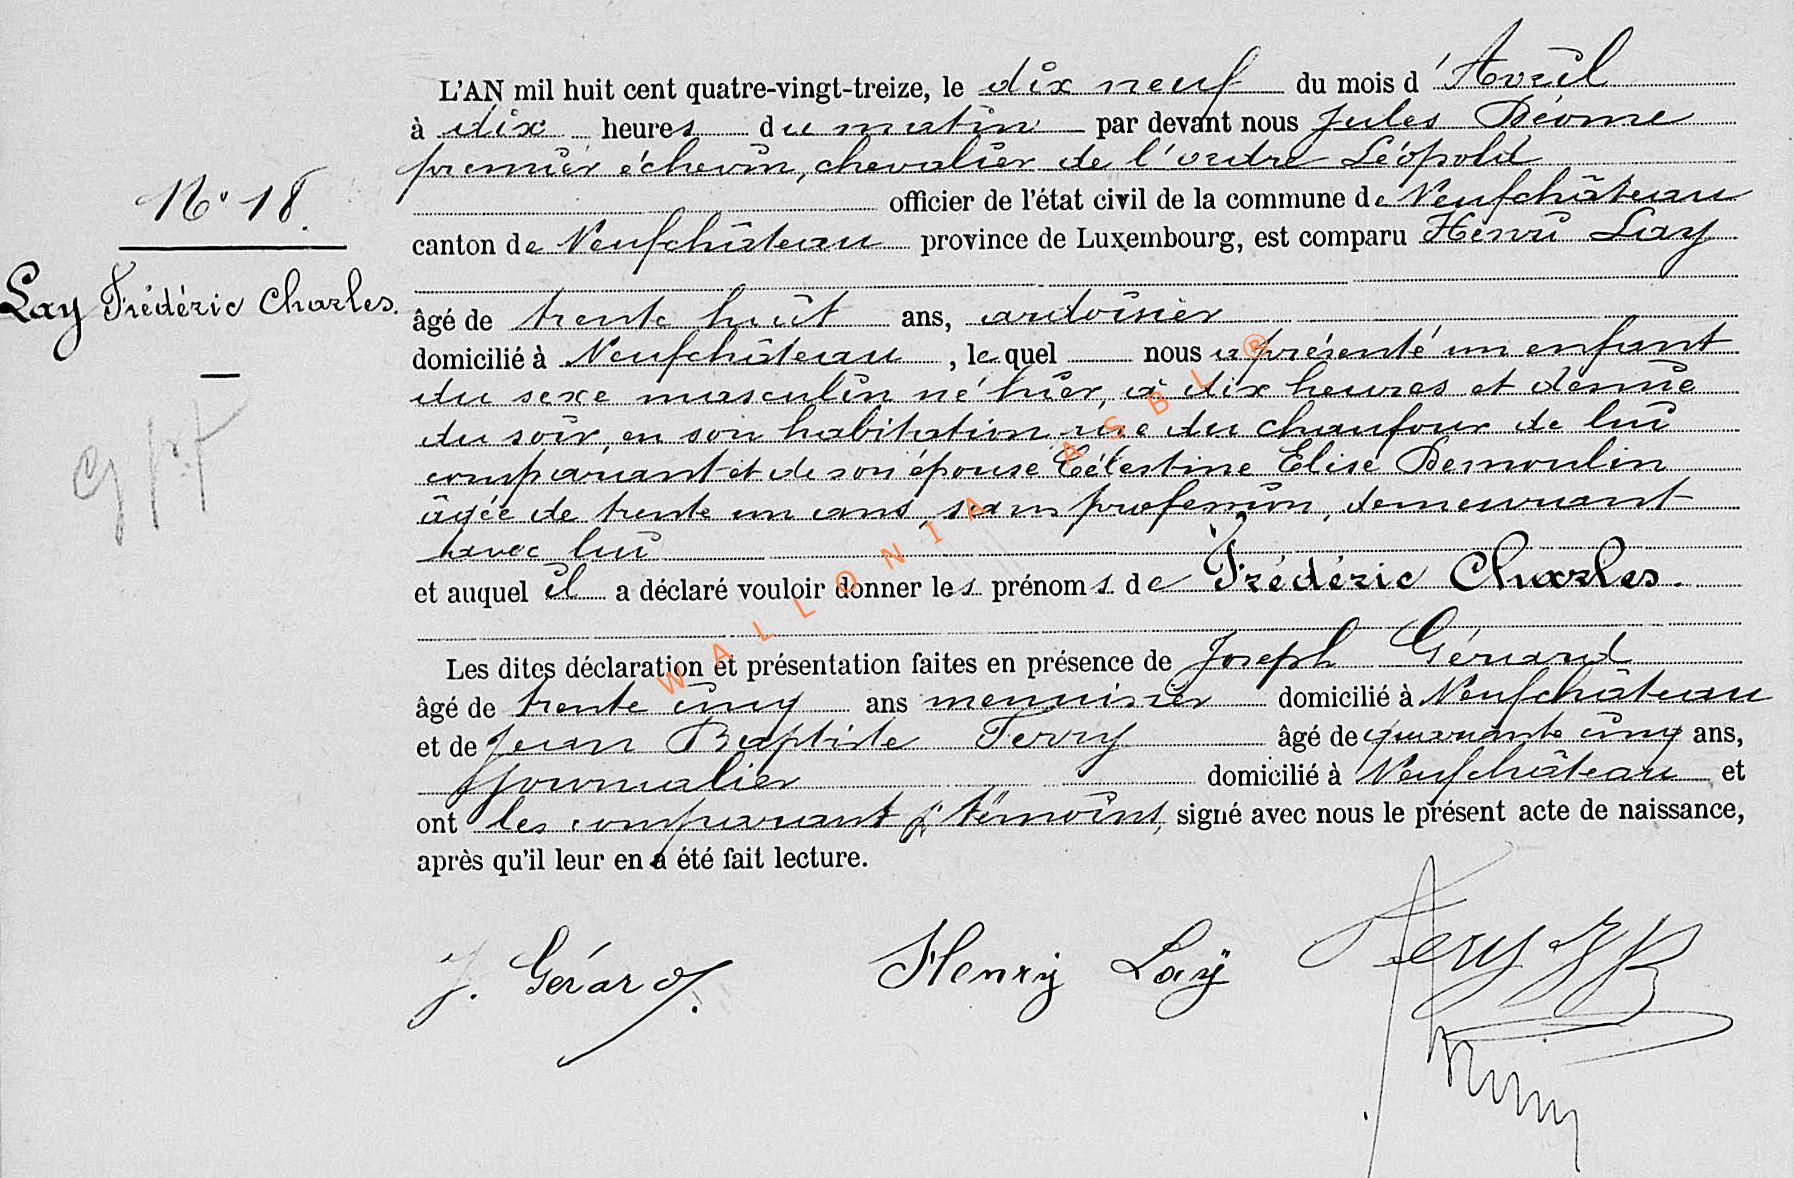 L'AN mil huit cent quatre-vingt-treize, le dix neuf du mois d'Avril
à dix heures du matin par devant nous Jules Déome
premier échevin, chevalier de l'ordre Léopold
officier de l'état civil de la commune de Neufchâteau
canton de Neufchâteau province de Luxembourg, est comparu Henri Lay
N° 18.
Lay Frédéric Charles.
âgé de trente huit ans, ardoisier
domicilié à Neufchâteau, lequel nous a présenté un enfant
du sexe masculin né hier, à dix heures et demie
du soir, en son habitation rue du chaufour de lui
comparant et de son épouse Célestine Elise Demoulin
âgée de trente un ans, sans profession, demeurant
avec lui
et auquel il a déclaré vouloir donner les prénoms de Frédéric Charles.
Les dites déclaration et présentation faites en présence de Joseph Gérard
âgé de trente cinq ans menuisier domicilié à Neufchâteau
et de Jean Baptiste Terry âgé de quarante cinq ans,
journalier domicilié à Neufchâteau et
ont les comparant & témoins, signé avec nous le présent acte de naissance,
après qu'il leur en a été fait lecture.
J. Gérard. Henry Laÿ Tery JB
WALLONIA ASBL ®